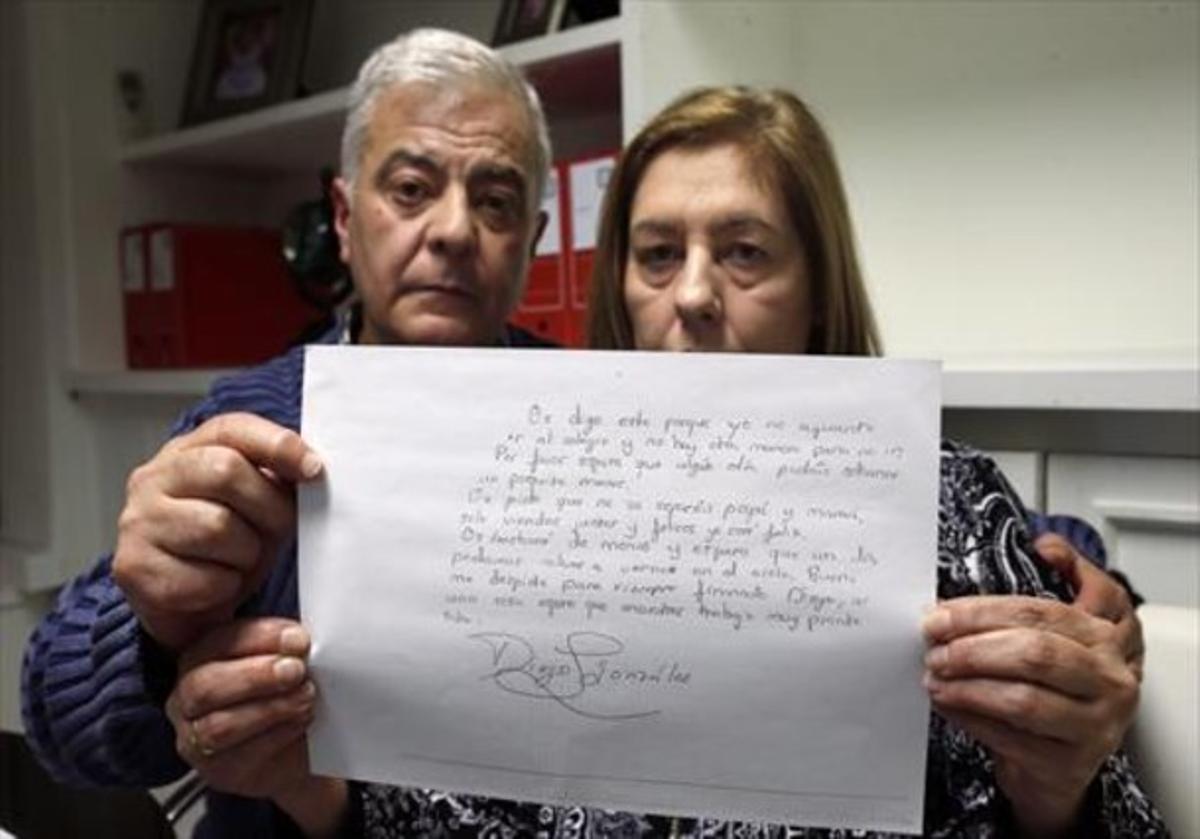 Os digo esto porque yo no aguanto
ir al colegio y no hay otra manera para no ir
Por favor espero que algún día podáis odiarme
un poquito menos.
Os pido que no os separéis papá y mamá,
sólo viendoos juntos y felices yo seré feliz.
Os echaré de menos y espero que un día
podamos volver a vernos en el cielo. Bueno
me despido para siempre firmado Diego,
una cosa espero que encuentres trabajo muy pronto
Tata.
Diego González